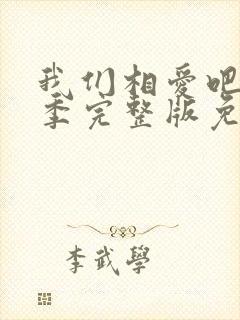 我们相爱吧
季完整版免
李武學